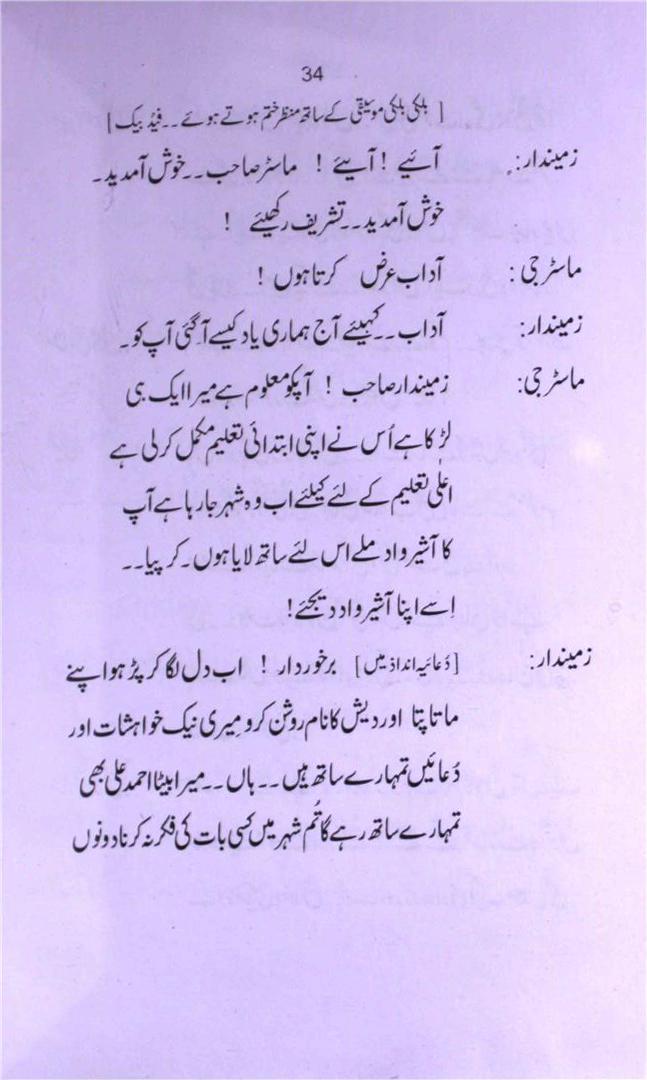 34
[ ہلکی ہلکی موسیقی کے ساتھ منظر ختم ہوتے ہوئے۔۔فیڈ بیک ]
زمیندار: آئیے ! آیئے ! ماسٹر صاحب۔۔خوش آمدید۔
خوش آمدید۔۔تشریف رکھیئے !
ماسٹر جی : آداب عرض کرتا ہوں !
زمیندار: آداب۔۔کہیئے آج ہماری یاد کیسے آگئی آپ کو۔
ماسٹر جی: زمیندار صاحب ! آپکو معلوم ہے میرا ایک ہی
لڑکا ہے اُس نے اپنی ابتدائی تعلیم مکمل کرلی ہے
اعلٰی تعلیم کے لئے کیلئے اب وہ شہر جارہا ہے آپ
کا آشیرواد ملے اس لئے ساتھ لایا ہوں۔کرپیا۔۔
اِسے اپنا آشیرواد دیجئے!
زمیندار: [دُعائیہ انداذ میں] برخوردار ! اب دل لگا کر پڑہو اپنے
ماتا پتا اور دیش کا نام روشن کرو میری نیک خواہشات اور
دُعائیں تمہارے ساتھ ہیں۔۔ہاں۔۔میرا بیٹا احمد علی بھی
تمہارے ساتھ رہے گا تُم شہر میں کسی بات کی فکر نہ کرنا دونوں